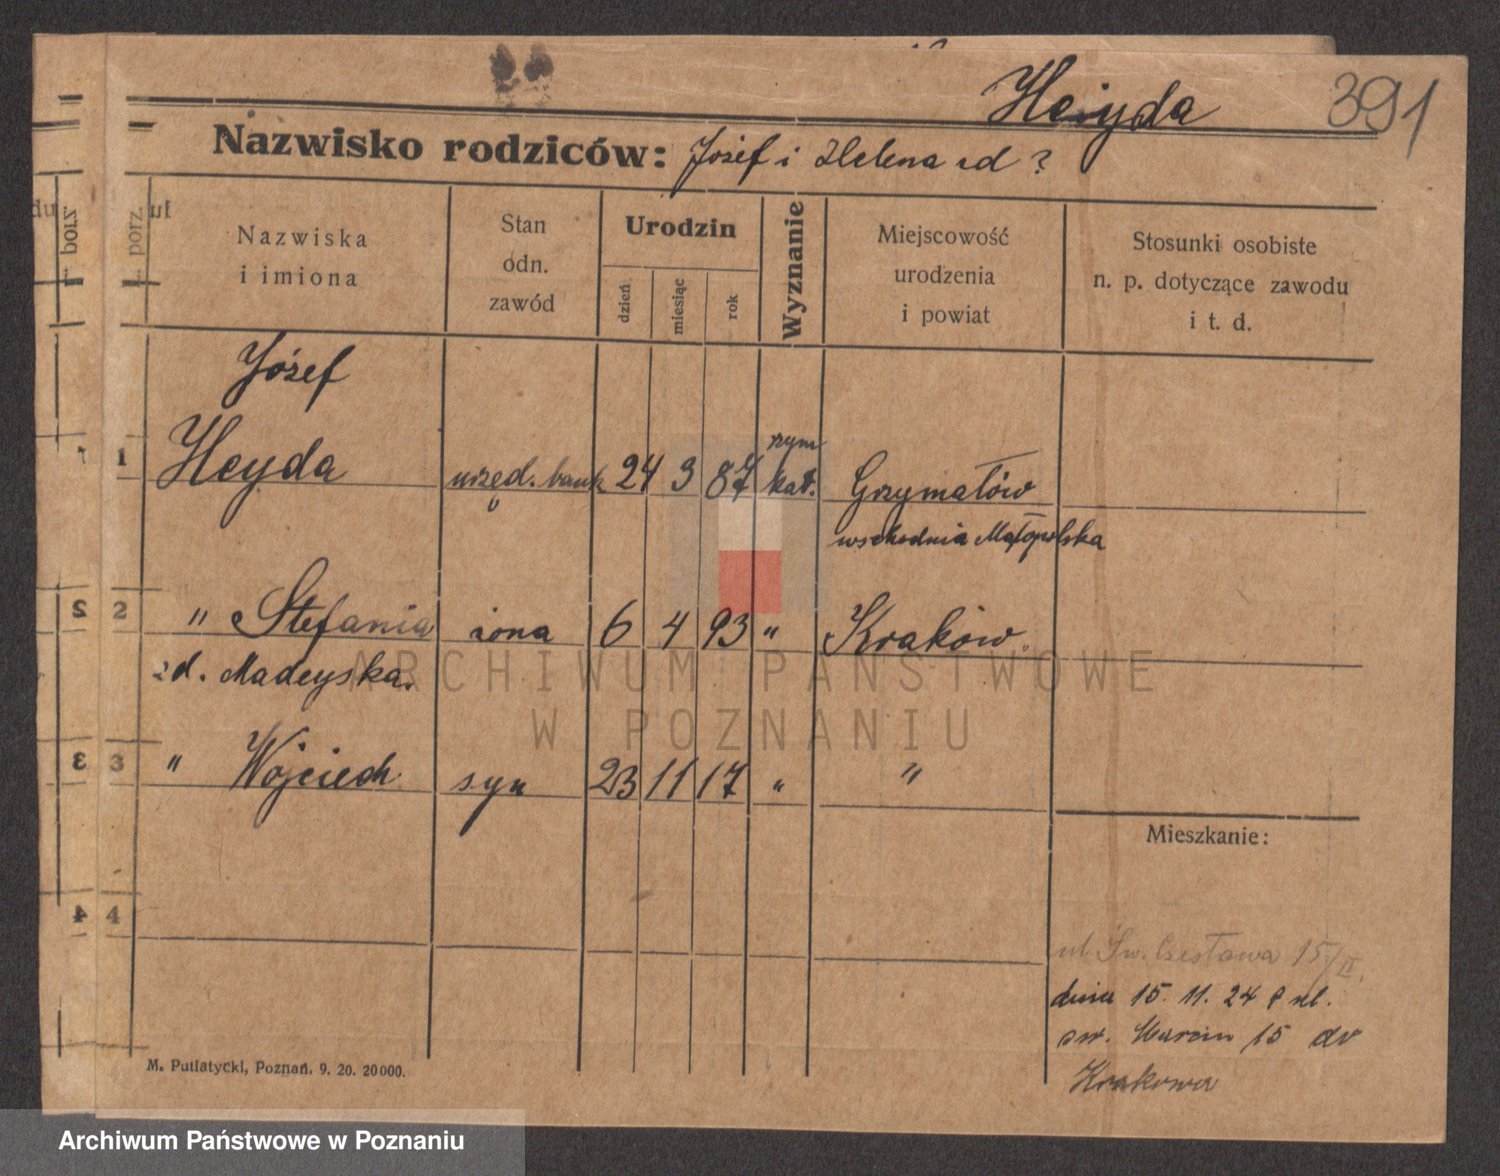 Heyda 391
Nazwisko rodziców: Józef i Helena zd ?
porz.
Nazwiska
i imiona
Stan
odn.
zawód
Urodzin
dzień
miesiąc
rok
Wyznanie
Miejscowość
urodzenia
i powiat
Stosunki osobiste
n. p. dotyczące zawodu
i t. d.
Józef
1 Heyda urzęd. bank 24 3 87 rzym kat. Grzymałów
wschodnia Małopolska
2 " Stefania żona 6 4 93 " Kraków.
zd. Madeyska.
3 " Wojciech syn 23 11 17 " "
4
Mieszkanie:
ul Św. Czesława 15/II.
dnia 15. 11. 24 z ul.
św. Marcin 15 do
Krakowa
M. Putiatycki, Poznań. 9. 20. 20000.
ARCHIWUM PAŃSTWOWE
W POZNANIU
Archiwum Państwowe w Poznaniu